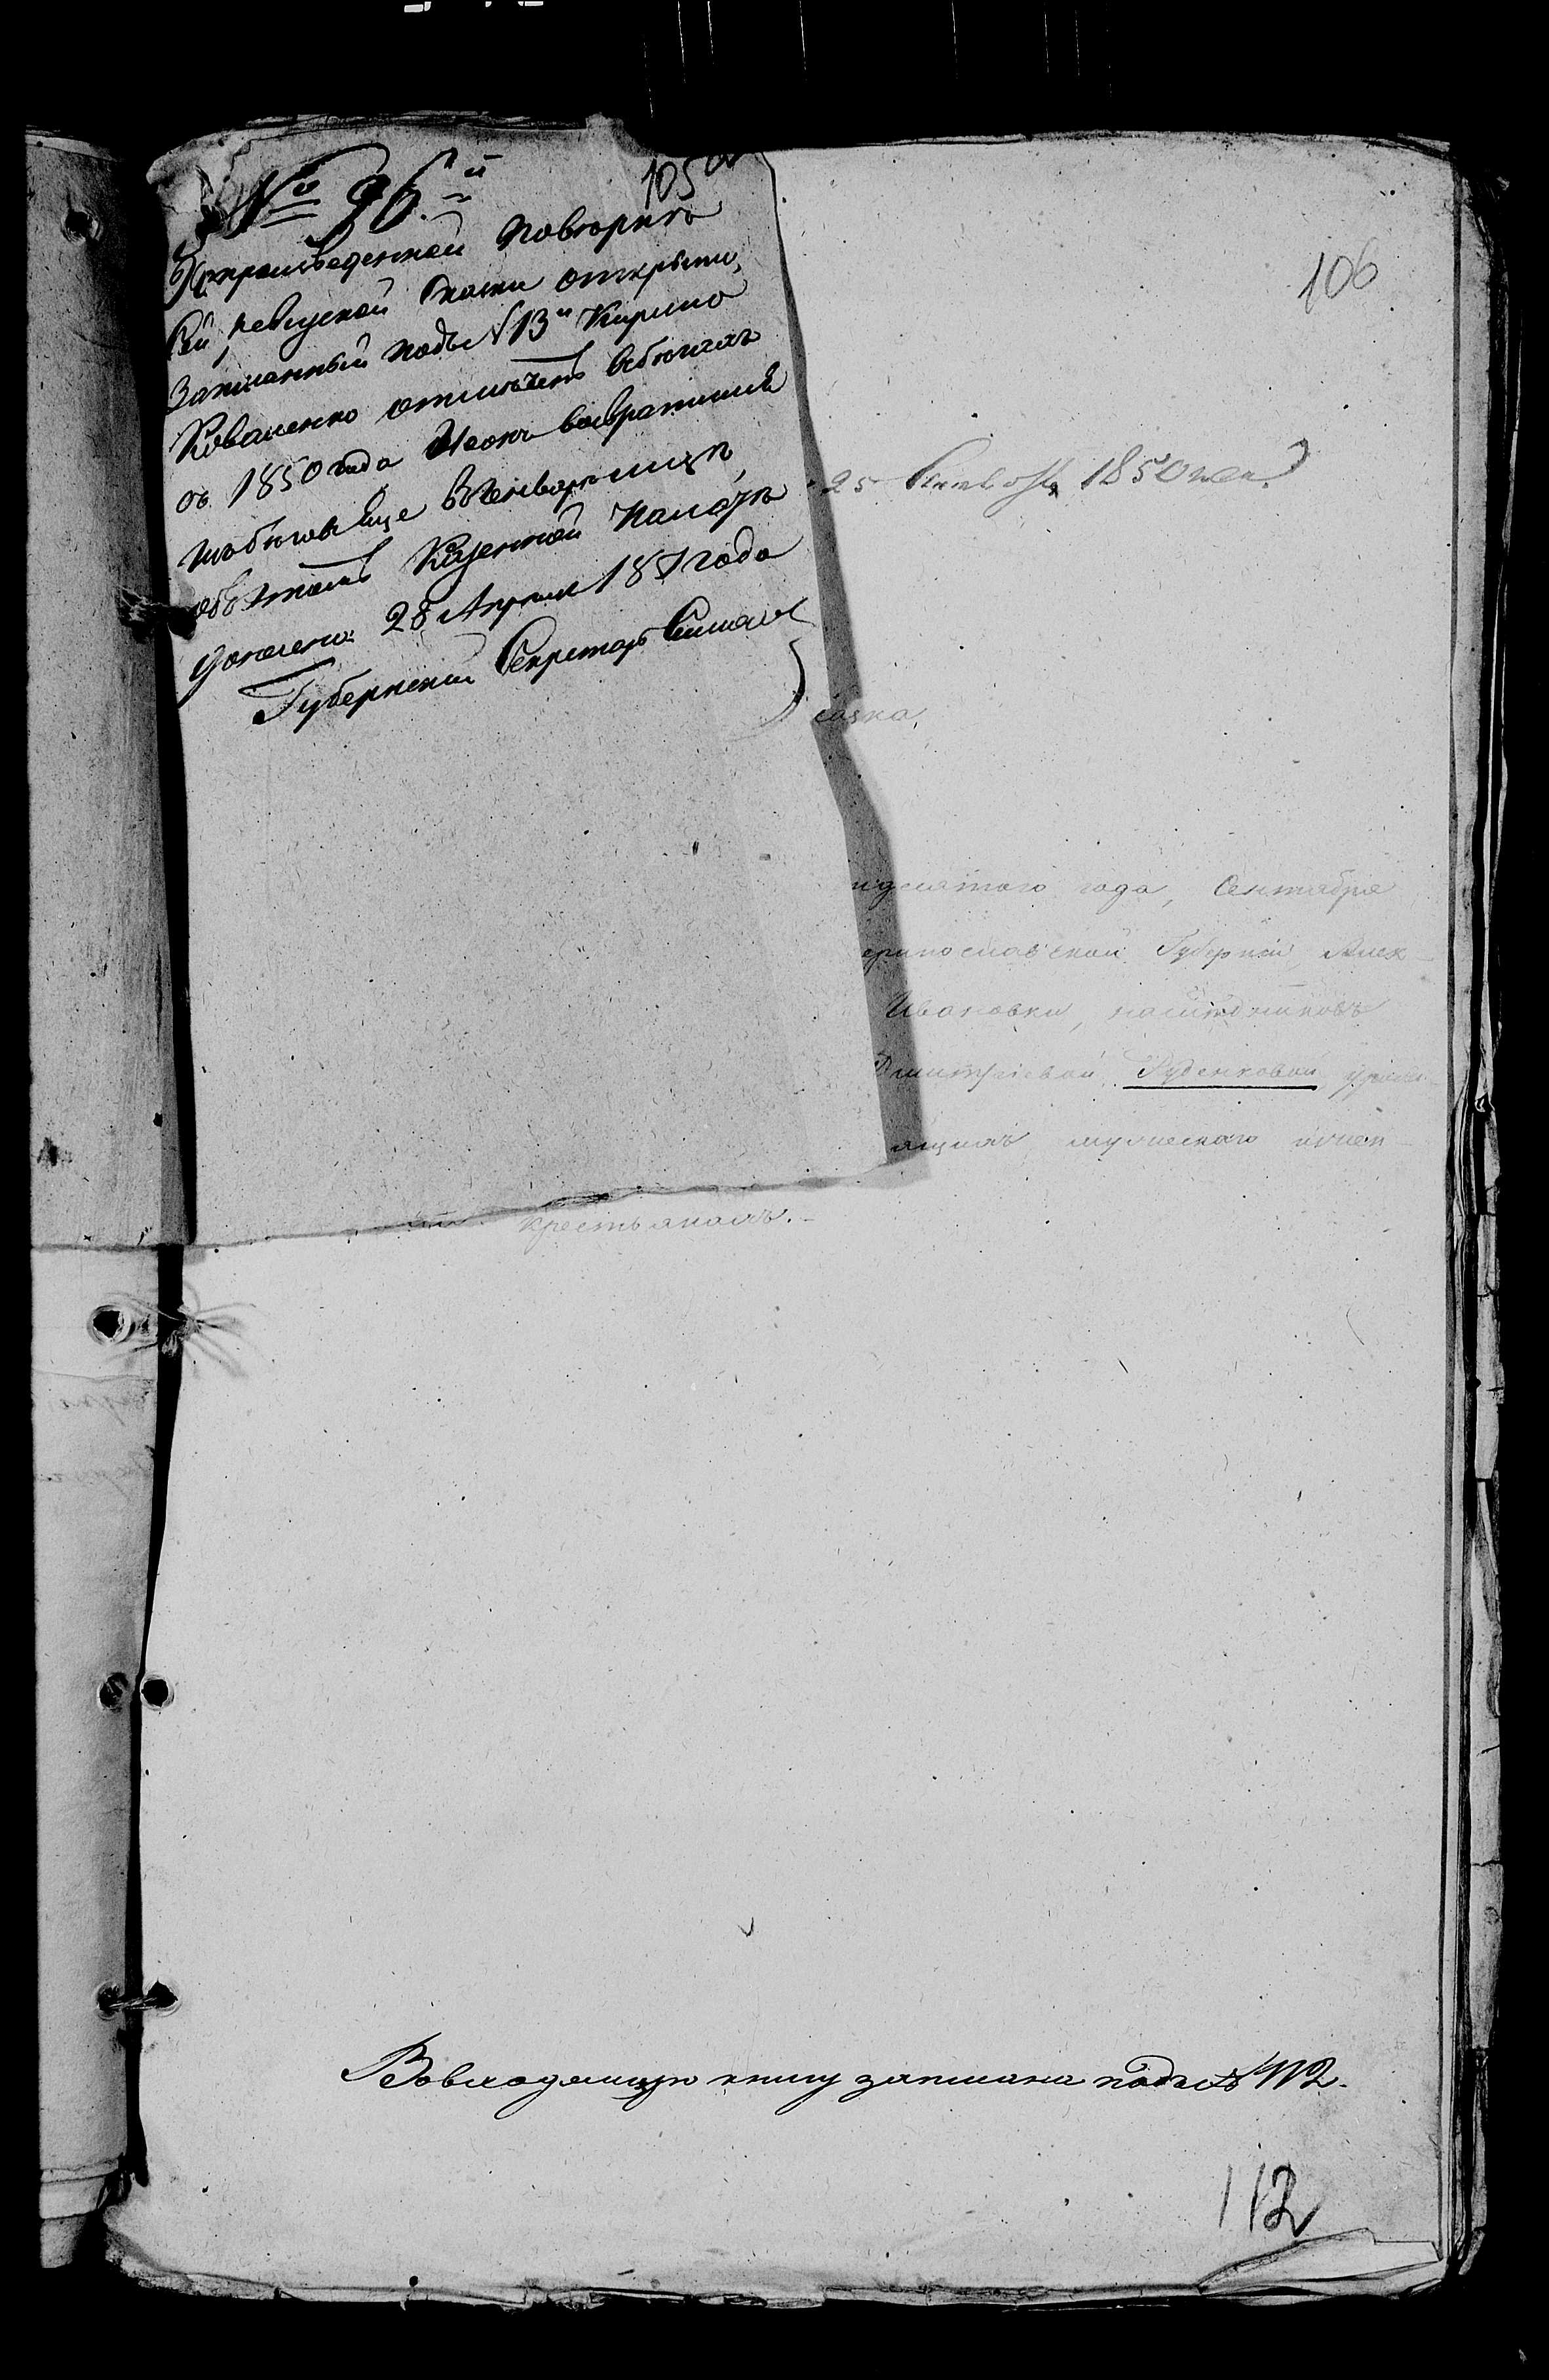 № 96.й
105 об
По произведенной повторкѣ
сей ревизской сказки открыто,
Записанный подъ № 13й Кирило
Коваленко отмѣченъ въ бегахъ
съ 1850 года
возвратился
изъ беговъ еще въ Генварѣ мецѣ,
объ этомъ Казенной Палатѣ
донесено 28 Апреля 1851 года
Губернскій Секретарь
106
25 Сентября 1850 года
сказка,
идесятого года, Сентября
еринославской Губерніи, Алек-
Ивановки, наслѣдниковъ
Дмитріевой Руденковой,
ящихъ мужескаго и жен-
крестьянахъ.-
Во входящую книгу записана подъ № 112.
112